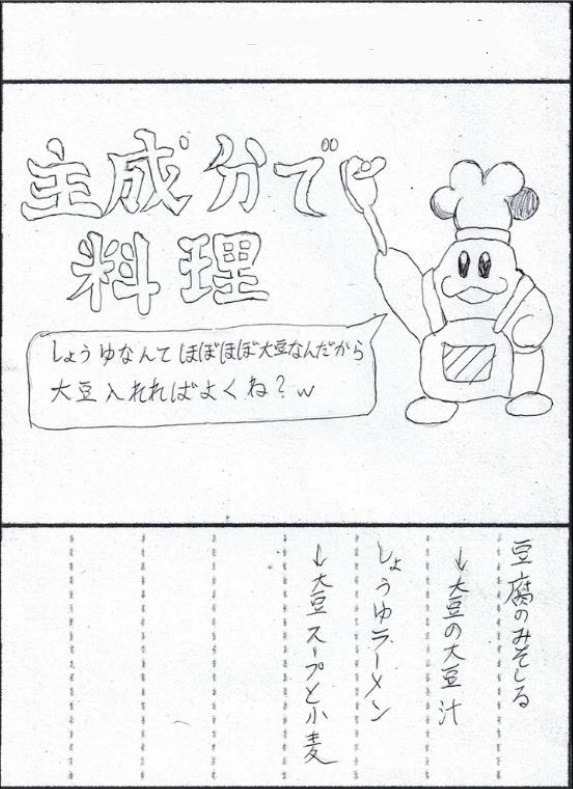 主成分で
料理
しょうゆなんてほぼほぼ大豆なんだから
大豆入れればよくね?w
豆腐のみそしる
↓大豆の大豆汁
しょうゆラーメン
↓大豆スープと小麦